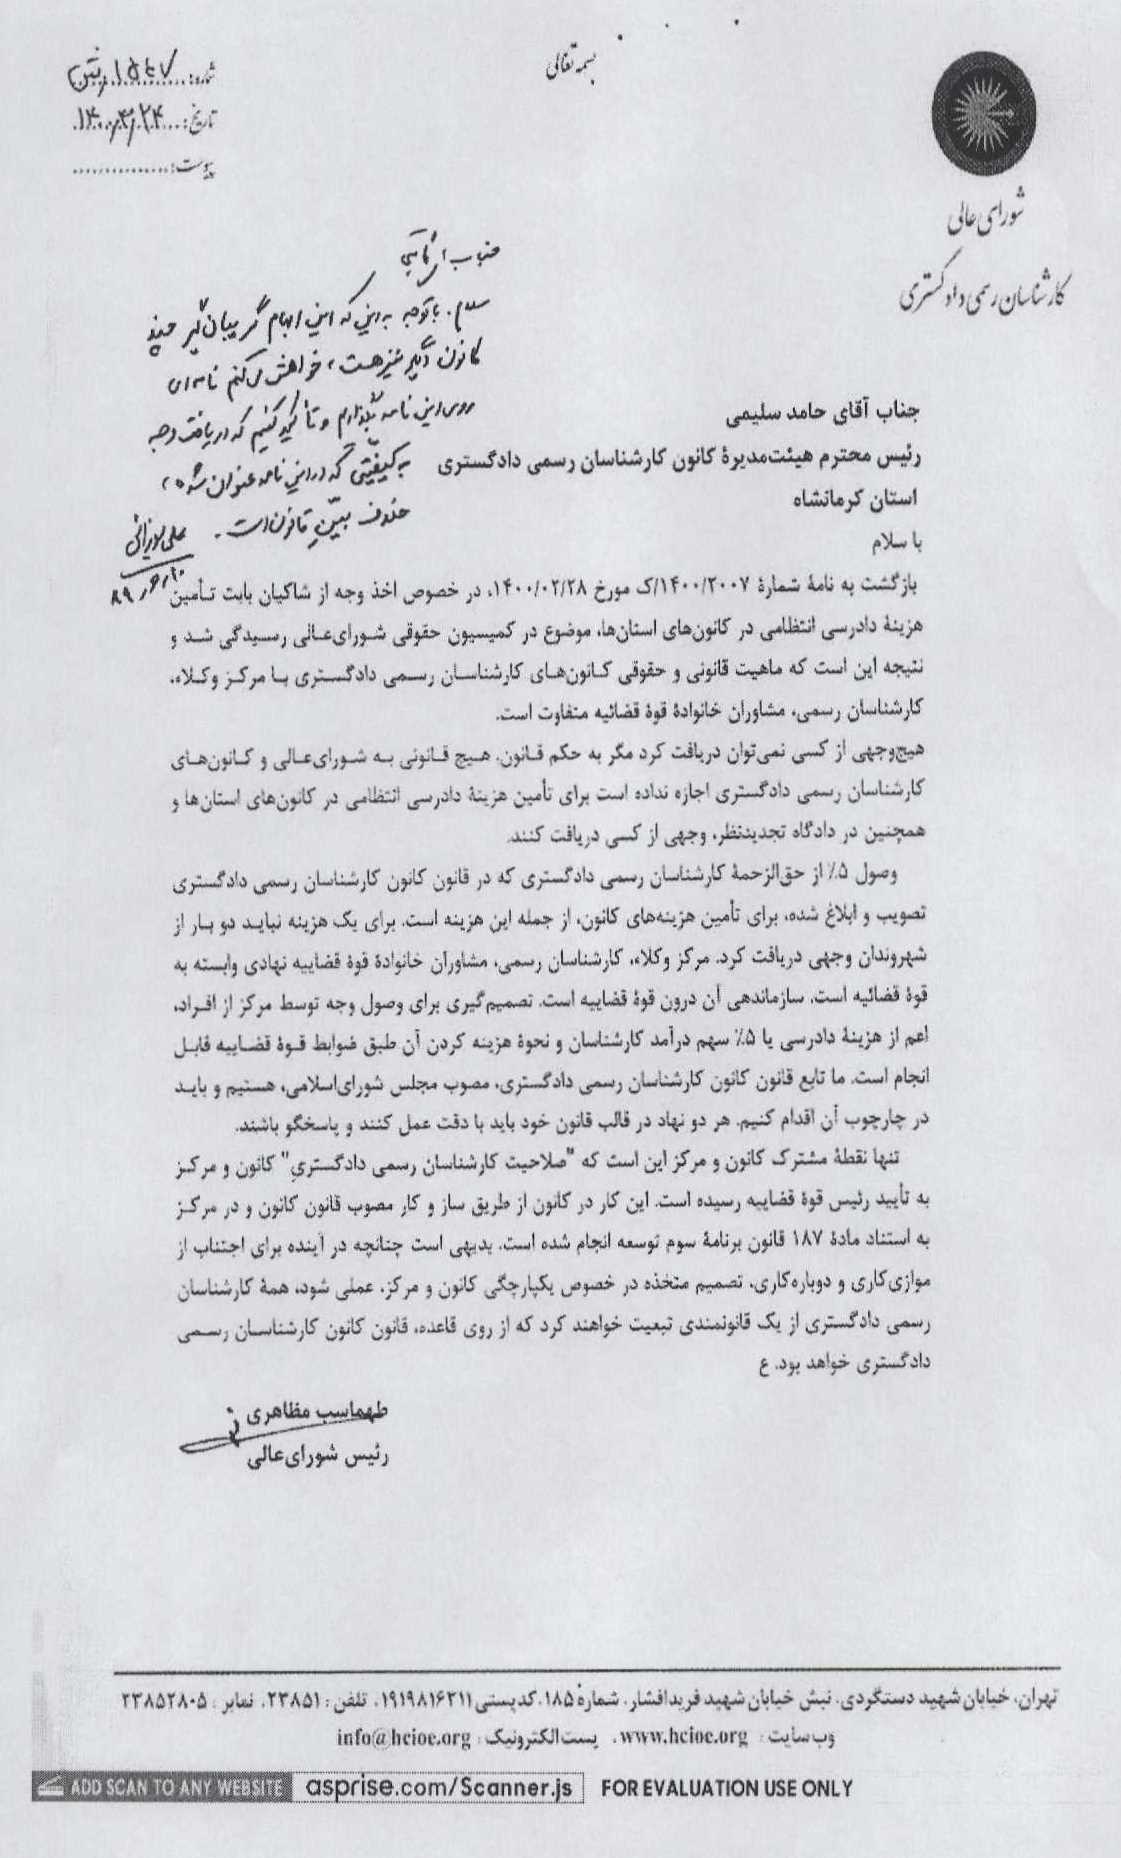 بسمه تعالی
شماره:
تاریخ: ۱۴۰۰/۳/۲۴
پیوست:
شورای عالی
کارشناسان رسمی دادگستری
جناب
سلام. با توجه به این که این ابهام گریبان‌گیر چند
کانون دیگر نیز هست، خواهش می‌کنم نامه‌ای
روی این نامه بگذارم و تأکید کنیم که دریافت وجه
به کیفیتی که در این نامه عنوان شده،
خلاف بیّنِ قانون است.
جناب آقای حامد سلیمی
رئیس محترم هیئت‌مدیرهٔ کانون کارشناسان رسمی دادگستری
استان کرمانشاه
با سلام
بازگشت به نامهٔ شمارهٔ ۱۴۰۰/۲۰۰۷/ک مورخ ۱۴۰۰/۰۲/۲۸، در خصوص اخذ وجه از شاکیان بابت تأمین
هزینهٔ دادرسی انتظامی در کانون‌های استان‌ها، موضوع در کمیسیون حقوقی شورای‌عالی رسیدگی شد و
نتیجه این است که ماهیت قانونی و حقوقی کانون‌های کارشناسان رسمی دادگستری با مرکز وکلاء،
کارشناسان رسمی، مشاوران خانوادهٔ قوهٔ قضائیه متفاوت است.
هیچ‌وجهی از کسی نمی‌توان دریافت کرد مگر به حکم قانون. هیچ قانونی به شورای‌عالی و کانون‌های
کارشناسان رسمی دادگستری اجازه نداده است برای تأمین هزینهٔ دادرسی انتظامی در کانون‌های استان‌ها و
همچنین در دادگاه تجدیدنظر، وجهی از کسی دریافت کنند.
وصول ۵٪ از حق‌الزحمهٔ کارشناسان رسمی دادگستری که در قانون کانون کارشناسان رسمی دادگستری
تصویب و ابلاغ شده، برای تأمین هزینه‌های کانون، از جمله این هزینه است. برای یک هزینه نباید دو بار از
شهروندان وجهی دریافت کرد. مرکز وکلاء، کارشناسان رسمی، مشاوران خانوادهٔ قوهٔ قضاییه نهادی وابسته به
قوهٔ قضائیه است. سازماندهی آن درون قوهٔ قضاییه است. تصمیم‌گیری برای وصول وجه توسط مرکز از افراد،
اعم از هزینهٔ دادرسی یا ۵٪ سهم درآمد کارشناسان و نحوهٔ هزینه کردن آن طبق ضوابط قوهٔ قضاییه قابل
انجام است. ما تابع قانون کانون کارشناسان رسمی دادگستری، مصوب مجلس شورای‌اسلامی، هستیم و باید
در چارچوب آن اقدام کنیم. هر دو نهاد در قالب قانون خود باید با دقت عمل کنند و پاسخگو باشند.
تنها نقطهٔ مشترک کانون و مرکز این است که "صلاحیت کارشناسان رسمی دادگستریِ" کانون و مرکز
به تأیید رئیس قوهٔ قضاییه رسیده است. این کار در کانون از طریق ساز و کار مصوب قانون کانون و در مرکز
به استناد مادهٔ ۱۸۷ قانون برنامهٔ سوم توسعه انجام شده است. بدیهی است چنانچه در آینده برای اجتناب از
موازی‌کاری و دوباره‌کاری، تصمیم متخذه در خصوص یکپارچگی کانون و مرکز، عملی شود، همهٔ کارشناسان
رسمی دادگستری از یک قانونمندی تبعیت خواهند کرد که از روی قاعده، قانون کانون کارشناسان رسمی
دادگستری خواهد بود. ع
طهماسب مظاهری
رئیس شورای‌عالی
تهران، خیابان شهید دستگردی، نبش خیابان شهید فریدافشار، شمارهٔ ۱۸۵، کدپستی ۱۹۱۹۸۱۶۳۱۱، تلفن: ۲۳۸۵۱، نمابر: ۲۳۸۵۲۸۰۵
وب سایت: www.hcioe.org، پست الکترونیک: info@hcioe.org
ADD SCAN TO ANY WEBSITE asprise.com/Scanner.js FOR EVALUATION USE ONLY